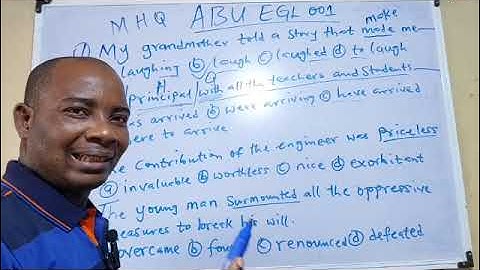 MHQ ABU EGL 001
make
My grandmother told a story that made me
laughing b) laugh c) laughed d) to laugh
Principal / with all the teachers and students
as arrived b) were arriving c) have arrived
ere to arrive
he Contribution of the engineer was Priceless
a) invaluable b) worthless c) nice d) exorbitant
The young man surmounted all the oppressive
easures to break his will.
overcame b) fou c) renounced d) defeated